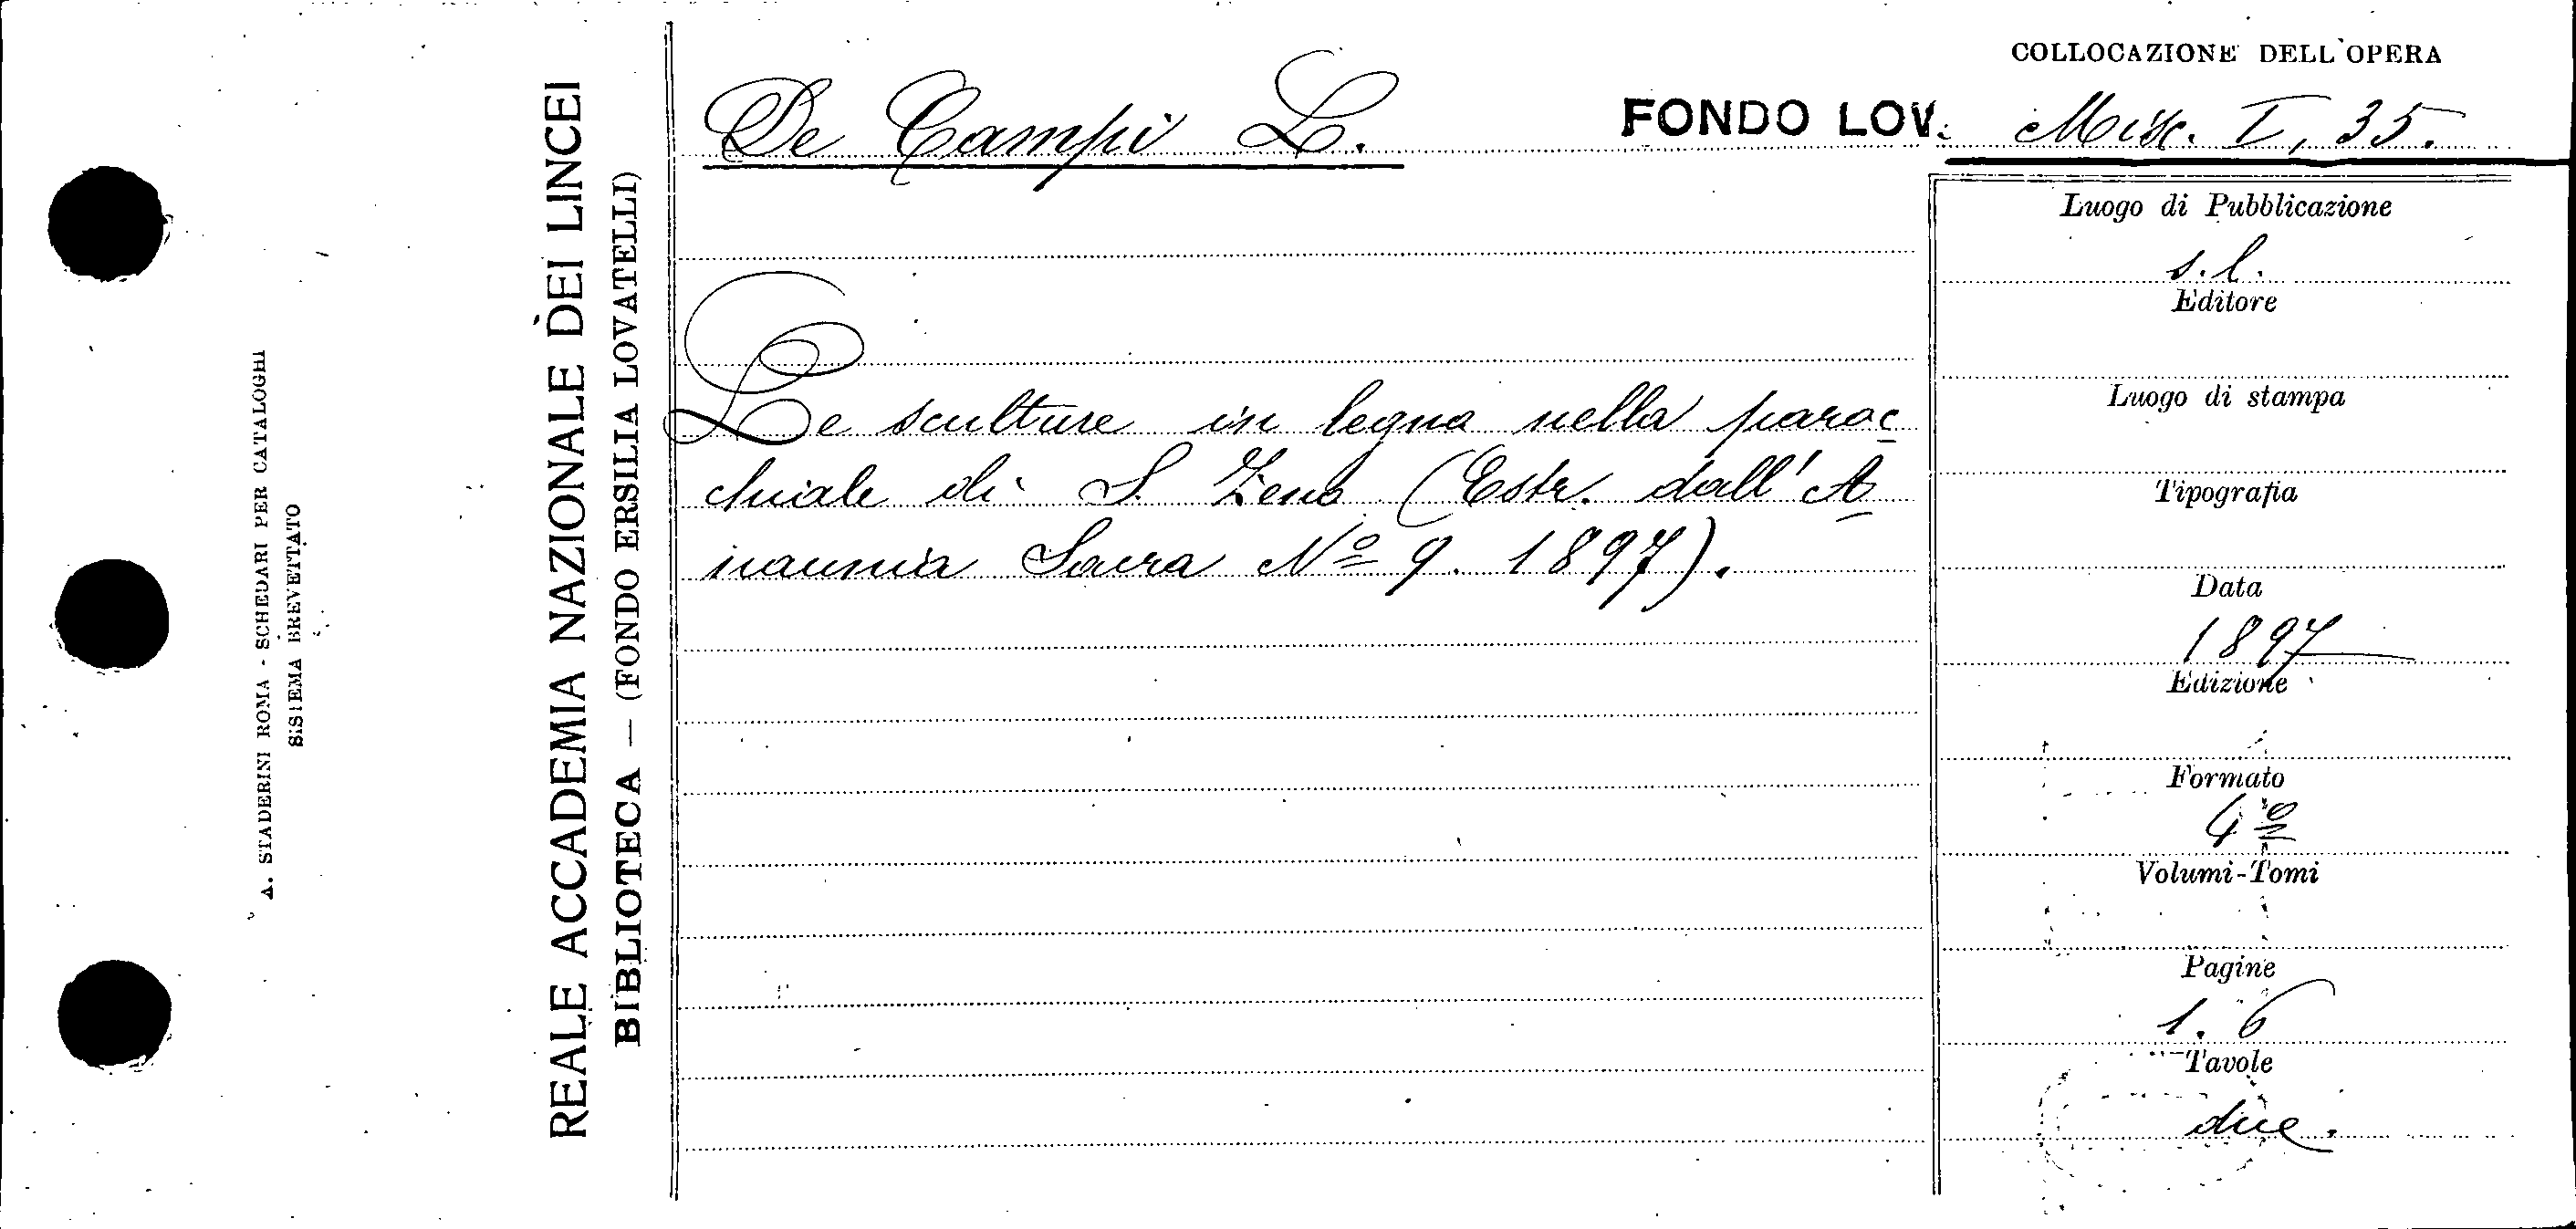 COLLOCAZIONE DELL'OPERA
De Campi L.
FONDO LOV. Misc. I, 35.
Le sculture in legno nella paroc
chiale di S. Zeno (Estr. dall'A
naunia Sacra Nº 9. 1897).
Luogo di Pubblicazione
s.l.
Editore
Luogo di stampa
Tipografia
Data
1897
Edizione
Formato
4º
Volumi-Tomi
Pagine
1. 6
Tavole
due.
REALE ACCADEMIA NAZIONALE DEI LINCEI
BIBLIOTECA — (FONDO ERSILIA LOVATELLI)
A. STADERINI ROMA - SCHEDARI PER CATALOGHI
SISTEMA BREVETTATO